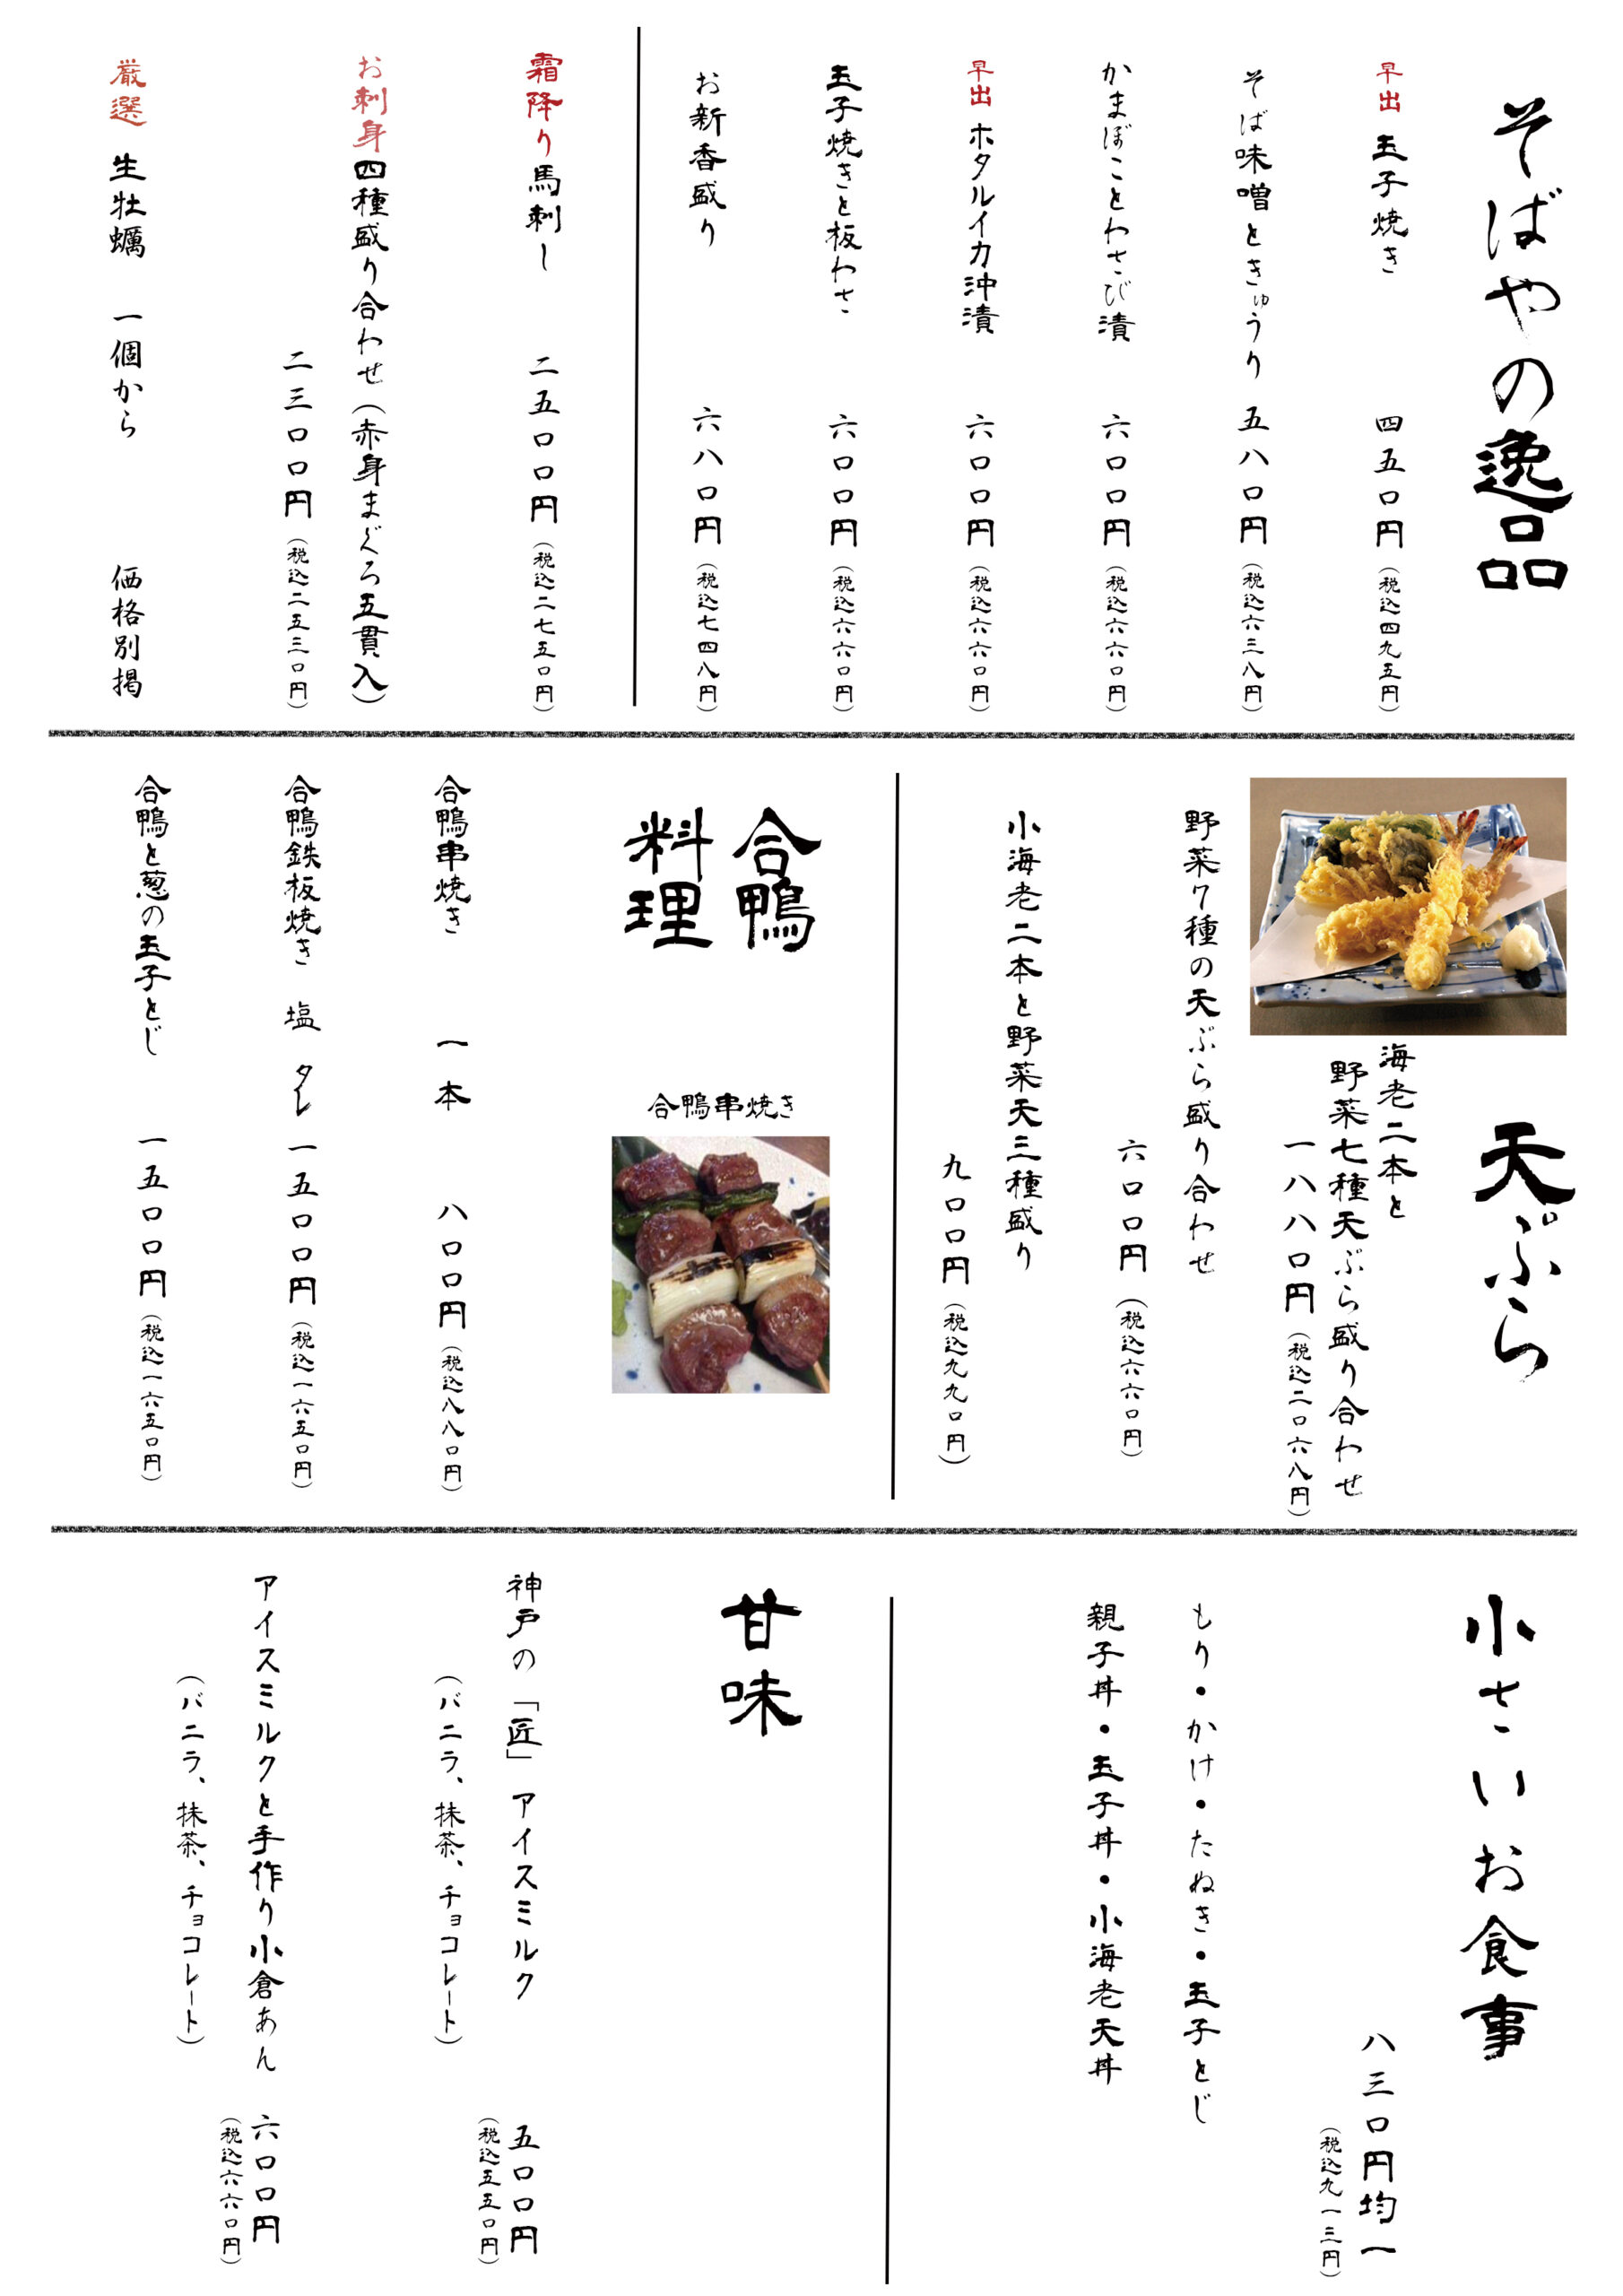 そばやの逸品
早出 玉子焼き 四五〇円（税込四九五円）
そば味噌ときゅうり 五八〇円（税込六三八円）
かまぼことわさび漬 六〇〇円（税込六六〇円）
早出 ホタルイカ沖漬 六〇〇円（税込六六〇円）
玉子焼きと板わさ 六〇〇円（税込六六〇円）
お新香盛り 六八〇円（税込七四八円）
霜降り馬刺し 二五〇〇円（税込二七五〇円）
お刺身四種盛り合わせ（赤身まぐろ五貫入）
二三〇〇円（税込二五三〇円）
厳選 生牡蠣 一個から 価格別掲
天ぷら
海老二本と
野菜七種天ぷら盛り合わせ
一八八〇円（税込二〇六八円）
野菜7種の天ぷら盛り合わせ
六〇〇円（税込六六〇円）
小海老二本と野菜天三種盛り
九〇〇円（税込九九〇円）
合鴨
料理
合鴨串焼き
合鴨串焼き 一本 八〇〇円（税込八八〇円）
合鴨鉄板焼き 塩 タレ 一五〇〇円（税込一六五〇円）
合鴨と葱の玉子とじ 一五〇〇円（税込一六五〇円）
小さいお食事
八三〇円均一
（税込九一三円）
もり・かけ・たぬき・玉子とじ
親子丼・玉子丼・小海老天丼
甘味
神戸の「匠」アイスミルク 五〇〇円
（税込五五〇円）
（バニラ、抹茶、チョコレート）
アイスミルクと手作り小倉あん 六〇〇円
（税込六六〇円）
（バニラ、抹茶、チョコレート）